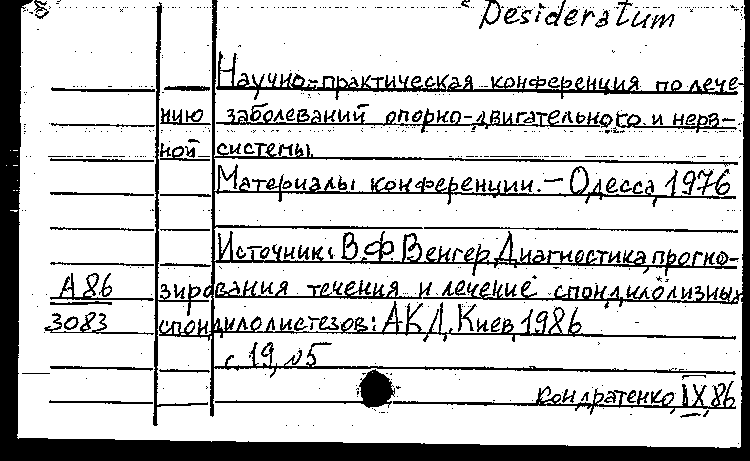 Desideratum
Научно-практическая конференция по лече-
нию заболеваний опорно-двигательного и нерв-
ной системы.
Материалы конференции. – Одесса, 1976
Источник: В.Ф. Венгер. Диагностика, прогно-
А 86 зирования течения и лечение спондилолизных
3083 спондилолистезов: АКД, Киев, 1986
с. 19, №5
Кондратенко, IX, 86